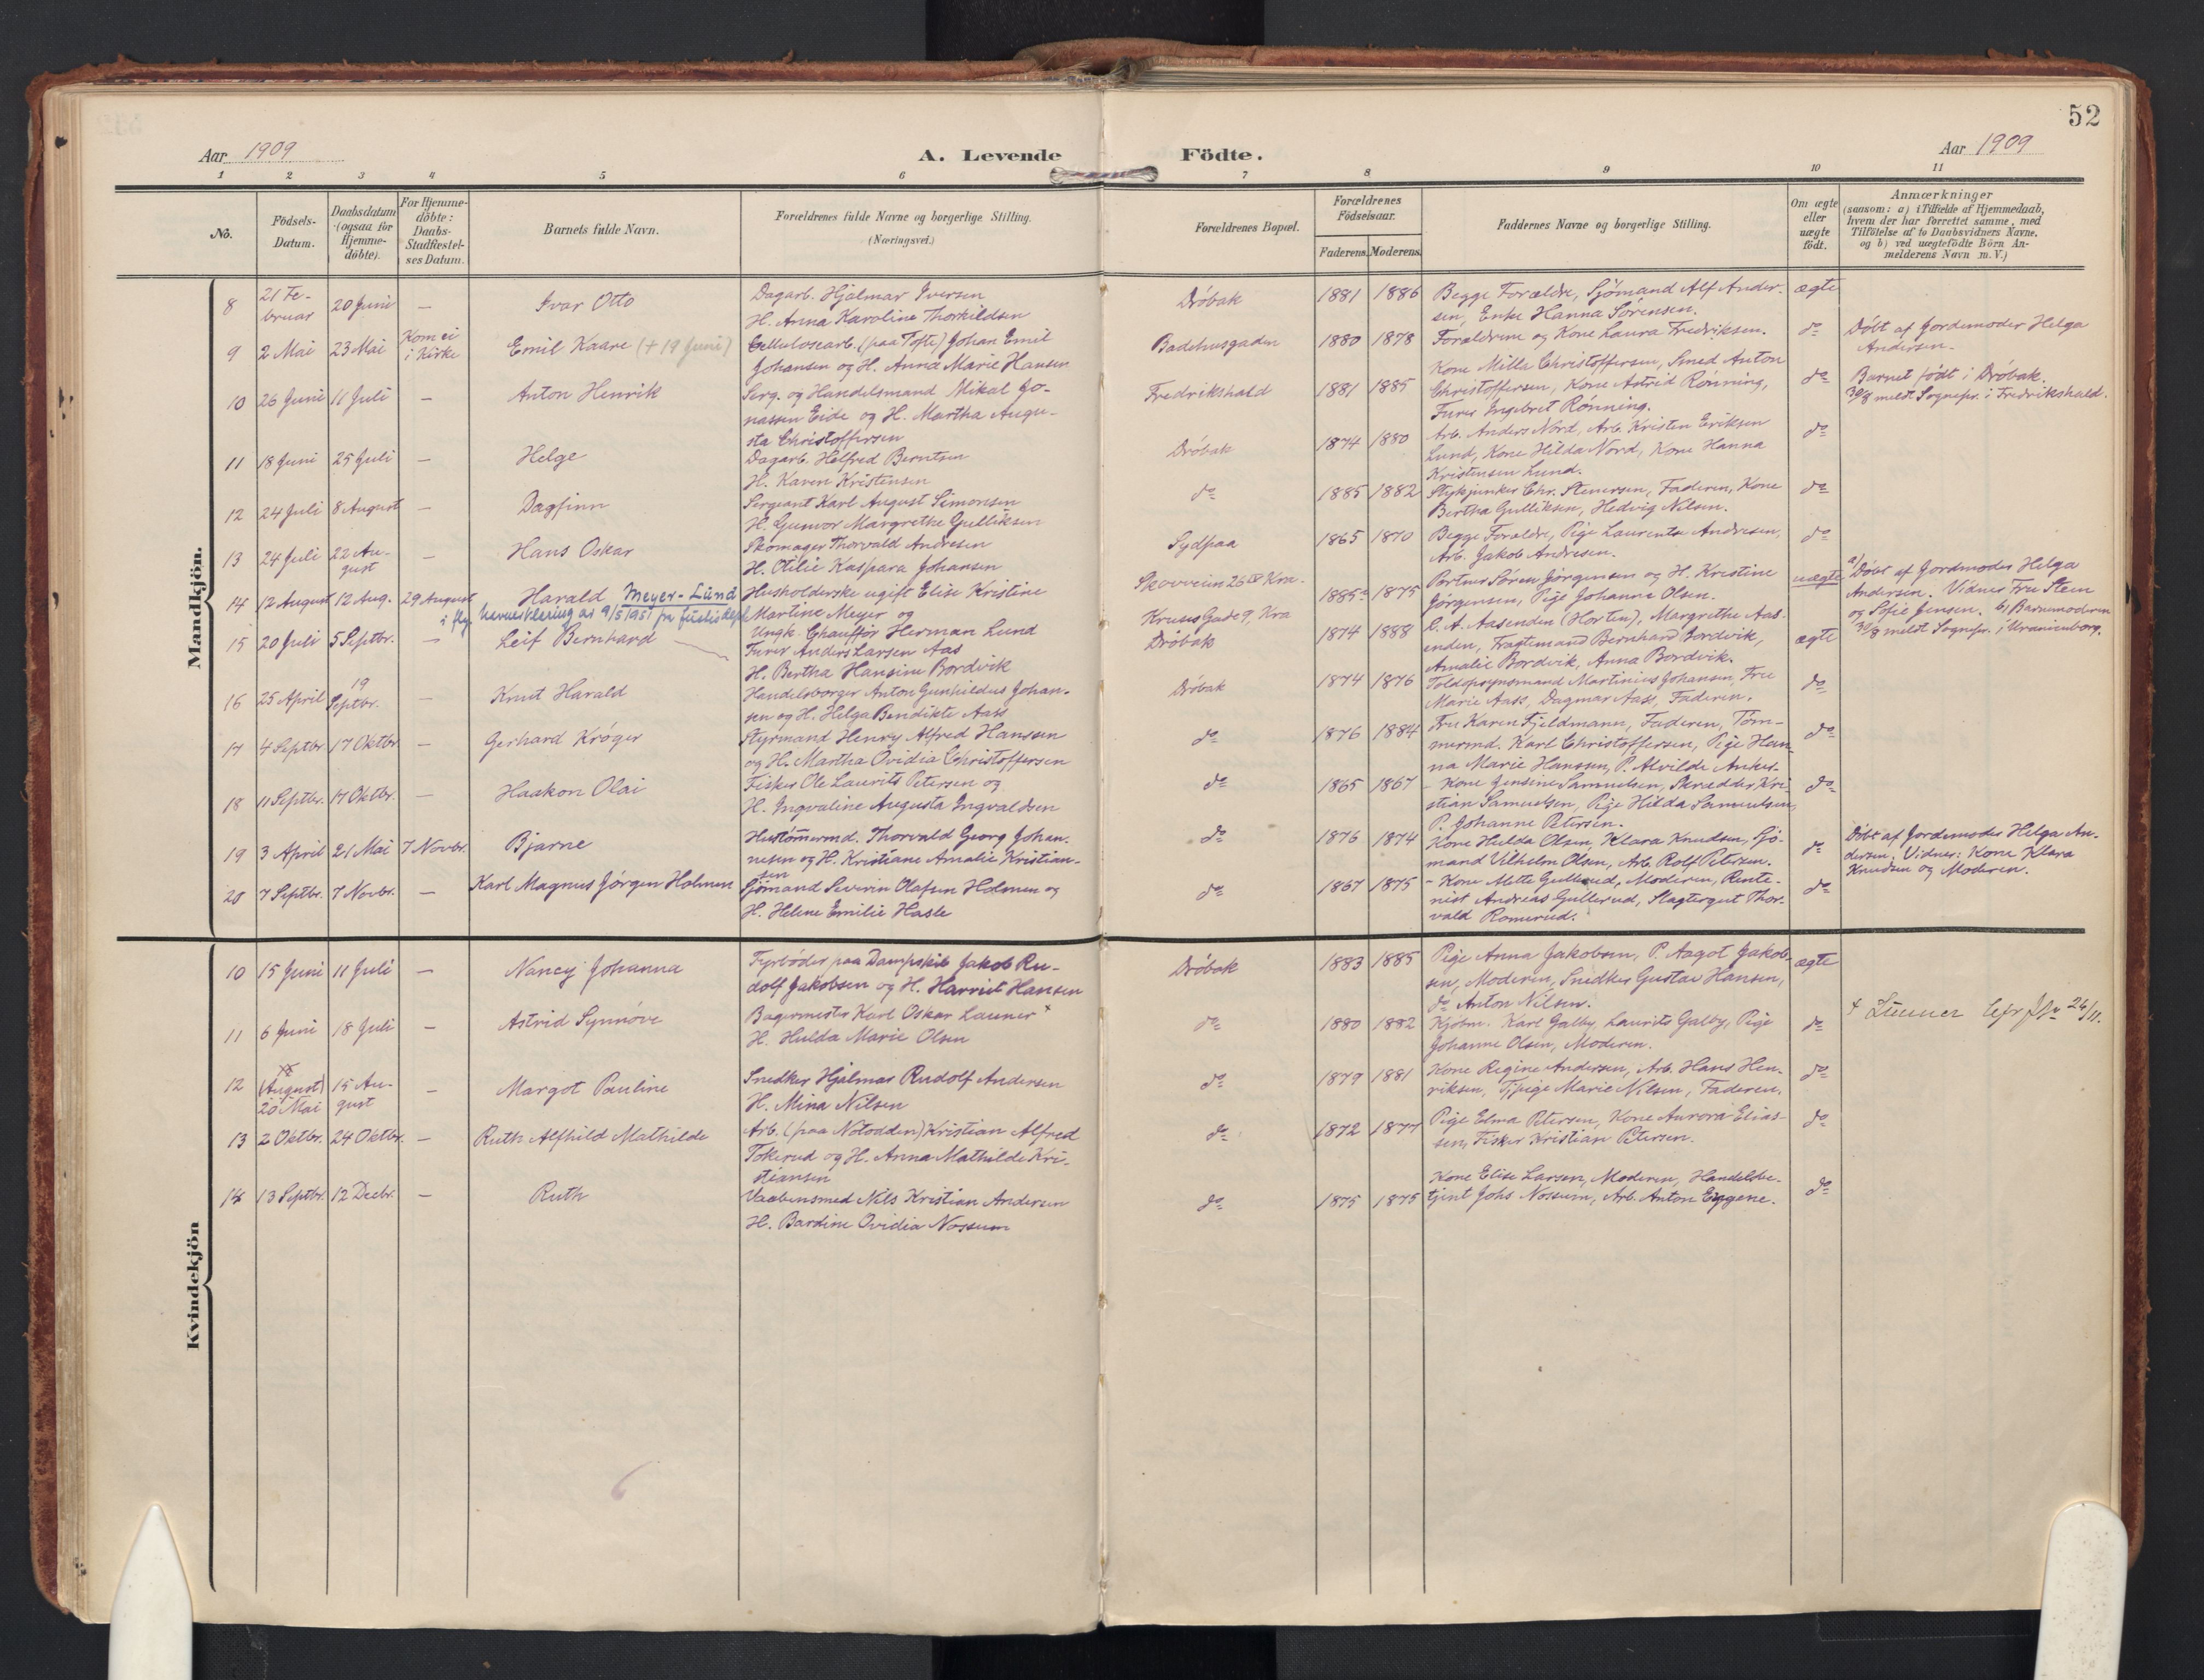 52
Aar 1909
A. Levende Födte.
Aar 1909
1 2 3 4 5 6 7 8 9 10 11
No.
Födsels-
Datum.
Daabsdatum
(ogsaa for
Hjemme-
döbte).
For Hjemme-
döbte:
Daabs-
Stadfæstel-
ses Datum.
Barnets fulde Navn.
Forældrenes fulde Navne og borgerlige Stilling.
(Næringsvei.)
Forældrenes Bopæl.
Forældrenes
Födselsaar.
Faderens. Moderens.
Faddernes Navne og borgerlige Stilling.
Om ægte
eller
uægte
födt.
Anmærkninger
(saasom: a) i Tilfælde af Hjemmedaab,
hvem der har forrettet samme, med
Tilföielse af to Daabsvidners Navne,
og b) ved uægtefödte Börn An-
melderens Navn m. V.)
Mandkjön.
8
21 Fe-
bruar
20 Juni
—
Ivar Otto
Dagarb. Hjalmar Iversen
H. Anna Karoline Thorkildsen
Dröbak
1881 1886
Begge Forældre, Sjömand Alf Ander-
sen, Enke Hanna Sörensen.
ægte
9
2 Mai
23 Mai
Kom ei
i Kirke
Emil Kaare (+ 19 Juni)
Cellulosearb. (paa Tofte) Johan Emil
Johansen og H. Anna Marie Hansen
Badehusgaden
1880 1878
Forældrene og Kone Laura Fredriksen.
do
Döbt af Jordemoder Helga
Andersen.
10
26 Juni
11 Juli
—
Anton Henrik
Serg. og Handelsmand Mikal Jo-
nassen Eide og H. Martha Augu-
sta Christoffersen
Fredrikshald
1881 1885
Kone Milla Christoffersen, Smed Anton
Christoffersen, Kone Astrid Rønning,
Furer Ingebret Rønning.
do
Barnet födt i Dröbak.
30/8 meldt Sognepr. i Fredrikshald.
11
18 Juni
25 Juli
—
Helge
Dagarb. Helfred Berntsen
H. Karen Kristensen
Dröbak
1874 1880
Arb. Anders Nord, Arb. Kristen Eriksen
Lund, Kone Hilda Nord, Kone Hanna
Kristensen Lund.
do
12
24 Juli
8 August
—
Dagfinn
Sergeant Karl August Simonsen
H. Gunvor Margrethe Gulliksen
do
1885 1882
Stykjunker Chr. Stenersen, Faderen, Kone
Bertha Gulliksen, Hedvig Nilsen.
do
13
24 Juli
22 Au-
gust
—
Hans Oskar
Skomager Thorvald Andresen
H. Otilie Kaspara Johansen
Sydpaa
1865 1870
Begge Forældre, Pige Laurentse Andresen,
Arb. Jakob Andresen.
do
14
12 August
12 Aug.
29 August
Harald Meyer-Lund
i flg. navneklæring av 9/5 1951 fra justisdept
Husholderske ugift Elise Kristine
Martine Meyer og
Ungk. Chaufför Herman Lund
Skovveien 26 IV Kra.
Kruses Gade 9, Kra
1885 1875
Portner Sören Jörgensen og H. Kristine
Jörgensen, Pige Johanne Olsen.
uægte
a) Döbt af Jordemoder Helga
Andersen. Vidner Fru Stein
og Sofie Jensen. b) Barnemoderen
30/8 meldt Sognepr. i Uranienborg.
15
20 Juli
5 Septbr.
—
Leif Bernhard
Furer Anders Larsen Aas
H. Bertha Hansine Bordvik
Dröbak
1874 1888
C. A. Aasenden (Horten), Margrethe Aas-
enden, Fragtemand Bernhard Bordvik,
Amalie Bordvik, Anna Bordvik.
ægte
16
25 April
19
Septbr.
—
Knut Harald
Handelsborger Anton Gunhildus Johan-
sen og H. Helga Bendikte Aass
Dröbak
1874 1876
Toldopsynsmand Martinius Johansen, Fru
Marie Aass, Dagmar Aass, Faderen.
do
17
4 Septbr
17 Oktbr.
—
Gerhard Kröger
Styrmand Henry Alfred Hanssen
og H. Martha Ovidia Christoffersen
do
1876 1884
Fru Karen Fjeldmann, Faderen, Töm-
mermd. Karl Christoffersen, Pige Han-
na Marie Hanssen, P. Alvilde Anker-
do
18
11 Septbr.
17 Oktbr.
—
Haakon Olai
Fisker Ole Laurits Petersen og
H. Ingvaline Augusta Ingvaldsen
do
1865 1867
- Kone Jensine Samuelsen, Skrædder Kri-
stian Samuelsen, Pige Hilda Samuelsen,
P. Johanne Petersen.
do
19
3 April
21 Mai
7 Novbr.
Bjarne
Hustömermd. Thorvald Georg Johan-
nesen og H. Kristiane Amalie Kristian-
sen
do
1876 1874
Kone Hulda Olsen, Klara Knudsen, Sjö-
mand Vilhelm Olsen, Arb. Rolf Petersen.
do
Döbt af Jordemoder Helga An-
dersen. Vidner: Kone Klara
Knudsen og Moderen.
20
7 Septbr.
7 Novbr.
—
Karl Magnus Jörgen Holmen
Sjömand Severin Olafsen Holmen og
H. Helene Emilie Hasle
do
1867 1875
- Kone Mette Gullerud, Moderen, Rente-
nist Andreas Gullerud, Slagtergut Thor-
vald Romerud.
do
Kvindekjön
10
15 Juni
11 Juli
—
Nancy Johanna
Fyrböder paa Dampskib Jakob Ru-
dolf Jakobsen og H. Harriet Hansen
Dröbak
1883 1885
Pige Anna Jakobsen, P. Aagot Jakob-
sen, Moderen, Snedker Gustav Hansen,
do Anton Nilsen.
ægte
11
6 Juni
18 Juli
—
Astrid Synnöve
Bagermester Karl Oskar Launer +
H. Hulda Marie Olsen
do
1880 1882
Kjöbm. Karl Galby, Laurits Galby, Pige
Johanne Olsen, Moderen.
do
12
(August)
20 Mai
15 Au-
gust
—
Margot Pauline
Snedker Hjalmar Rudolf Andersen
H. Mina Nilsen
do
1879 1881
Kone Regine Andersen, Arb. Hans Hen-
riksen, Tj.pige Marie Nilsen, Faderen.
do
13
2 Oktbr.
24 Oktbr.
—
Ruth Alfhild Mathilde
Arb. (paa Notodden) Kristian Alfred
Tokerud og H. Anna Mathilde Kri-
stiansen
do
1872 1877
Pige Elma Petersen, Kone Aurora Elias-
sen, Fisker Kristian Petersen.
do
14
13 Septbr.
12 Decbr.
—
Ruth
Vaabensmed Nils Kristian Andersen
H. Bardine Ovidia Nossum
do
1875 1875
Kone Elise Larsen, Moderen, Handelsbe-
tjent Johs Nossum, Arb. Anton Eggene.
do
6